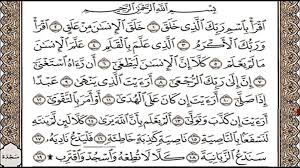 بِسْمِ ٱللَّهِ ٱلرَّحْمَٰنِ ٱلرَّحِيمِ
ٱقْرَأْ بِٱسْمِ رَبِّكَ ٱلَّذِى خَلَقَ ١ خَلَقَ ٱلْإِنسَٰنَ مِنْ عَلَقٍ ٢ ٱقْرَأْ
وَرَبُّكَ ٱلْأَكْرَمُ ٣ ٱلَّذِى عَلَّمَ بِٱلْقَلَمِ ٤ عَلَّمَ ٱلْإِنسَٰنَ مَا لَمْ
يَعْلَمْ ٥ كَلَّآ إِنَّ ٱلْإِنسَٰنَ لَيَطْغَىٰٓ ٦ أَن رَّءَاهُ ٱسْتَغْنَىٰٓ
٧ إِنَّ إِلَىٰ رَبِّكَ ٱلرُّجْعَىٰٓ ٨ أَرَءَيْتَ ٱلَّذِى يَنْهَىٰ ٩ عَبْدًا
إِذَا صَلَّىٰٓ ١٠ أَرَءَيْتَ إِن كَانَ عَلَى ٱلْهُدَىٰٓ ١١ أَوْ أَمَرَ بِٱلتَّقْوَىٰٓ ١٢
أَرَءَيْتَ إِن كَذَّبَ وَتَوَلَّىٰٓ ١٣ أَلَمْ يَعْلَم بِأَنَّ ٱللَّهَ يَرَىٰ ١٤ كَلَّا لَئِن لَّمْ يَنتَهِ
لَنَسْفَعًۢا بِٱلنَّاصِيَةِ ١٥ نَاصِيَةٍ كَٰذِبَةٍ خَاطِئَةٍ ١٦ فَلْيَدْعُ نَادِيَهُۥ ١٧
سَنَدْعُ ٱلزَّبَانِيَةَ ١٨ كَلَّا لَا تُطِعْهُ وَٱسْجُدْ وَٱقْتَرِب ۩ ١٩
سَجْدَة